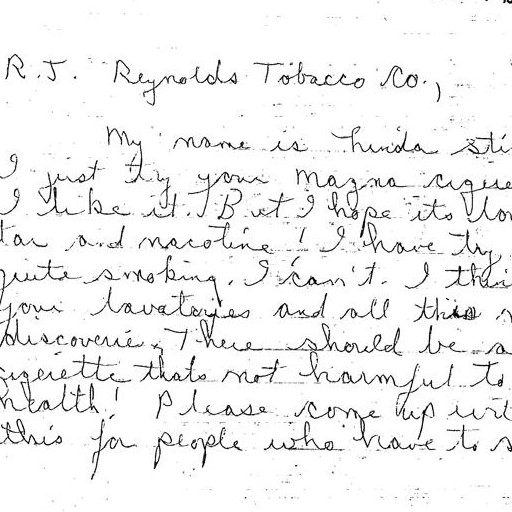 R.J. Reynolds Tobacco Co.,
My name is Linda sti
I just try your Magna cigere
I like it. But I hope its low
tar and nacotine! I have try
quite smoking. I can't. I thin
your lavatories and all this
discoverie, There should be a
cigerette thats not harmful to
health! Please come up wit
this for people who have to s